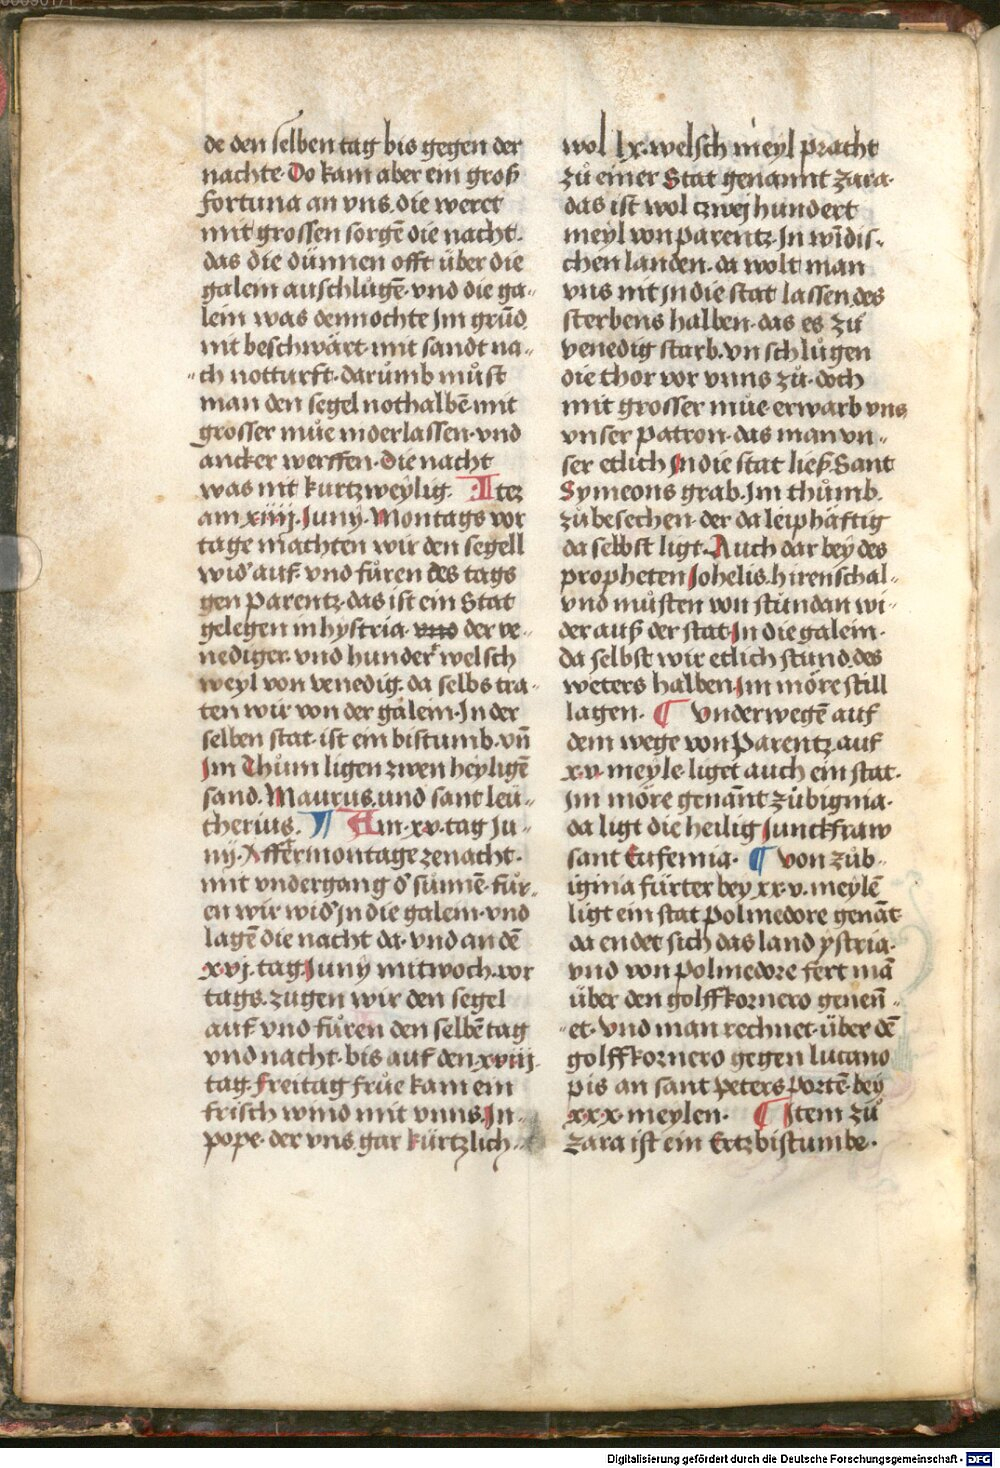 de den selben tag bis gegen der
nachte· Do kam aber ein groß
fortuna an vns. die weret
mit grossen sorgē die nacht·
das die dünnen offt über die
galein auschlůgē· vnd die ga-
lein was dennochte Jm grūd
nit beschwärt· mit sandt na-
ch notturft· darůmb můst
man den segel nothalbē mit
grosser můe niderlassen· vnd
ancker werffen· die nacht
was nit kurtzweylig. Itez
am xiiij. Juny· Montags vor
tage machten wir den segell
wid' auf· vnd fůren des tags
gen Parentz· das ist ein Stat
gelegen in hystria· vnd der ve-
nediger· vnd hundert welsch
weyl von venedig. da selbs tra-
ten wir von der galein· Jn der
selben stat· ist ein bistumb· vn̄
Jm Thům ligen zwen heyligē
sand. Maurus. und sant leü-
therius. ¶ Am· xv· tag Ju-
nij· Affermontage ze nacht·
mit vndergang d' sunnē· für-
en wir wid' Jn die galein· vnd
lagē die nacht da· vnd an dē
xvj· tag Juny mitwoch· vor
tags· zugen wir den segel
auf· vnd fůren den selbē tag
vnd nacht· bis auf den xviij·
tag· freitag frůe kam ein
frisch wind mit vnns. Jn
pope· der vns gar kürtzlich
wol lx. welsch meyl pracht
zů einer Stat genannt zara·
das ist wol czwej hundert
meyl von parentz· Jn wīdis-
chen landen· da wolt man
vns nit Jn die stat lassen des
sterbens halben· das es zů
venedig starb. vn schlůgen
die thor vor vnns zů· doch
mit grosser můe· erwarb vns
vnser patron· das man vn-
ser etlich Jn die stat ließ. Sant
Symeons grab. Jm thůmb.
zů besechen· der da leiphäftig
da selbst ligt· Auch dar beÿ des
propheten Johelis. hirenschal-
vnd můsten von stůndan wi-
der auß der stat Jn die galein·
da selbst wir etlich stund. des
weters halben Jm möre still
lagen· ¶ Vnderwegē auf
dem wege von Parentz auf
x·v· meyle· liget auch ein stat·
im möre genannt zůbignia·
da ligt die heilig Junckfraw
sant Eufemia· ¶ von zůb-
iginia fürter bey xx·v· meylē
ligt ein stat polmedore genāt
da endet sich das land ystria·
vnd von polmedore fert mā
über den golff kornero genen̄-
et· vnd man rechnet· über dē
golff kornero gegen lucano
pis an sant Peters portē· bey
xxx· meylen· ¶ Item zů
Zara ist ein Ertzbistumbe·
Digitalisierung gefördert durch die Deutsche Forschungsgemeinschaft - DFG